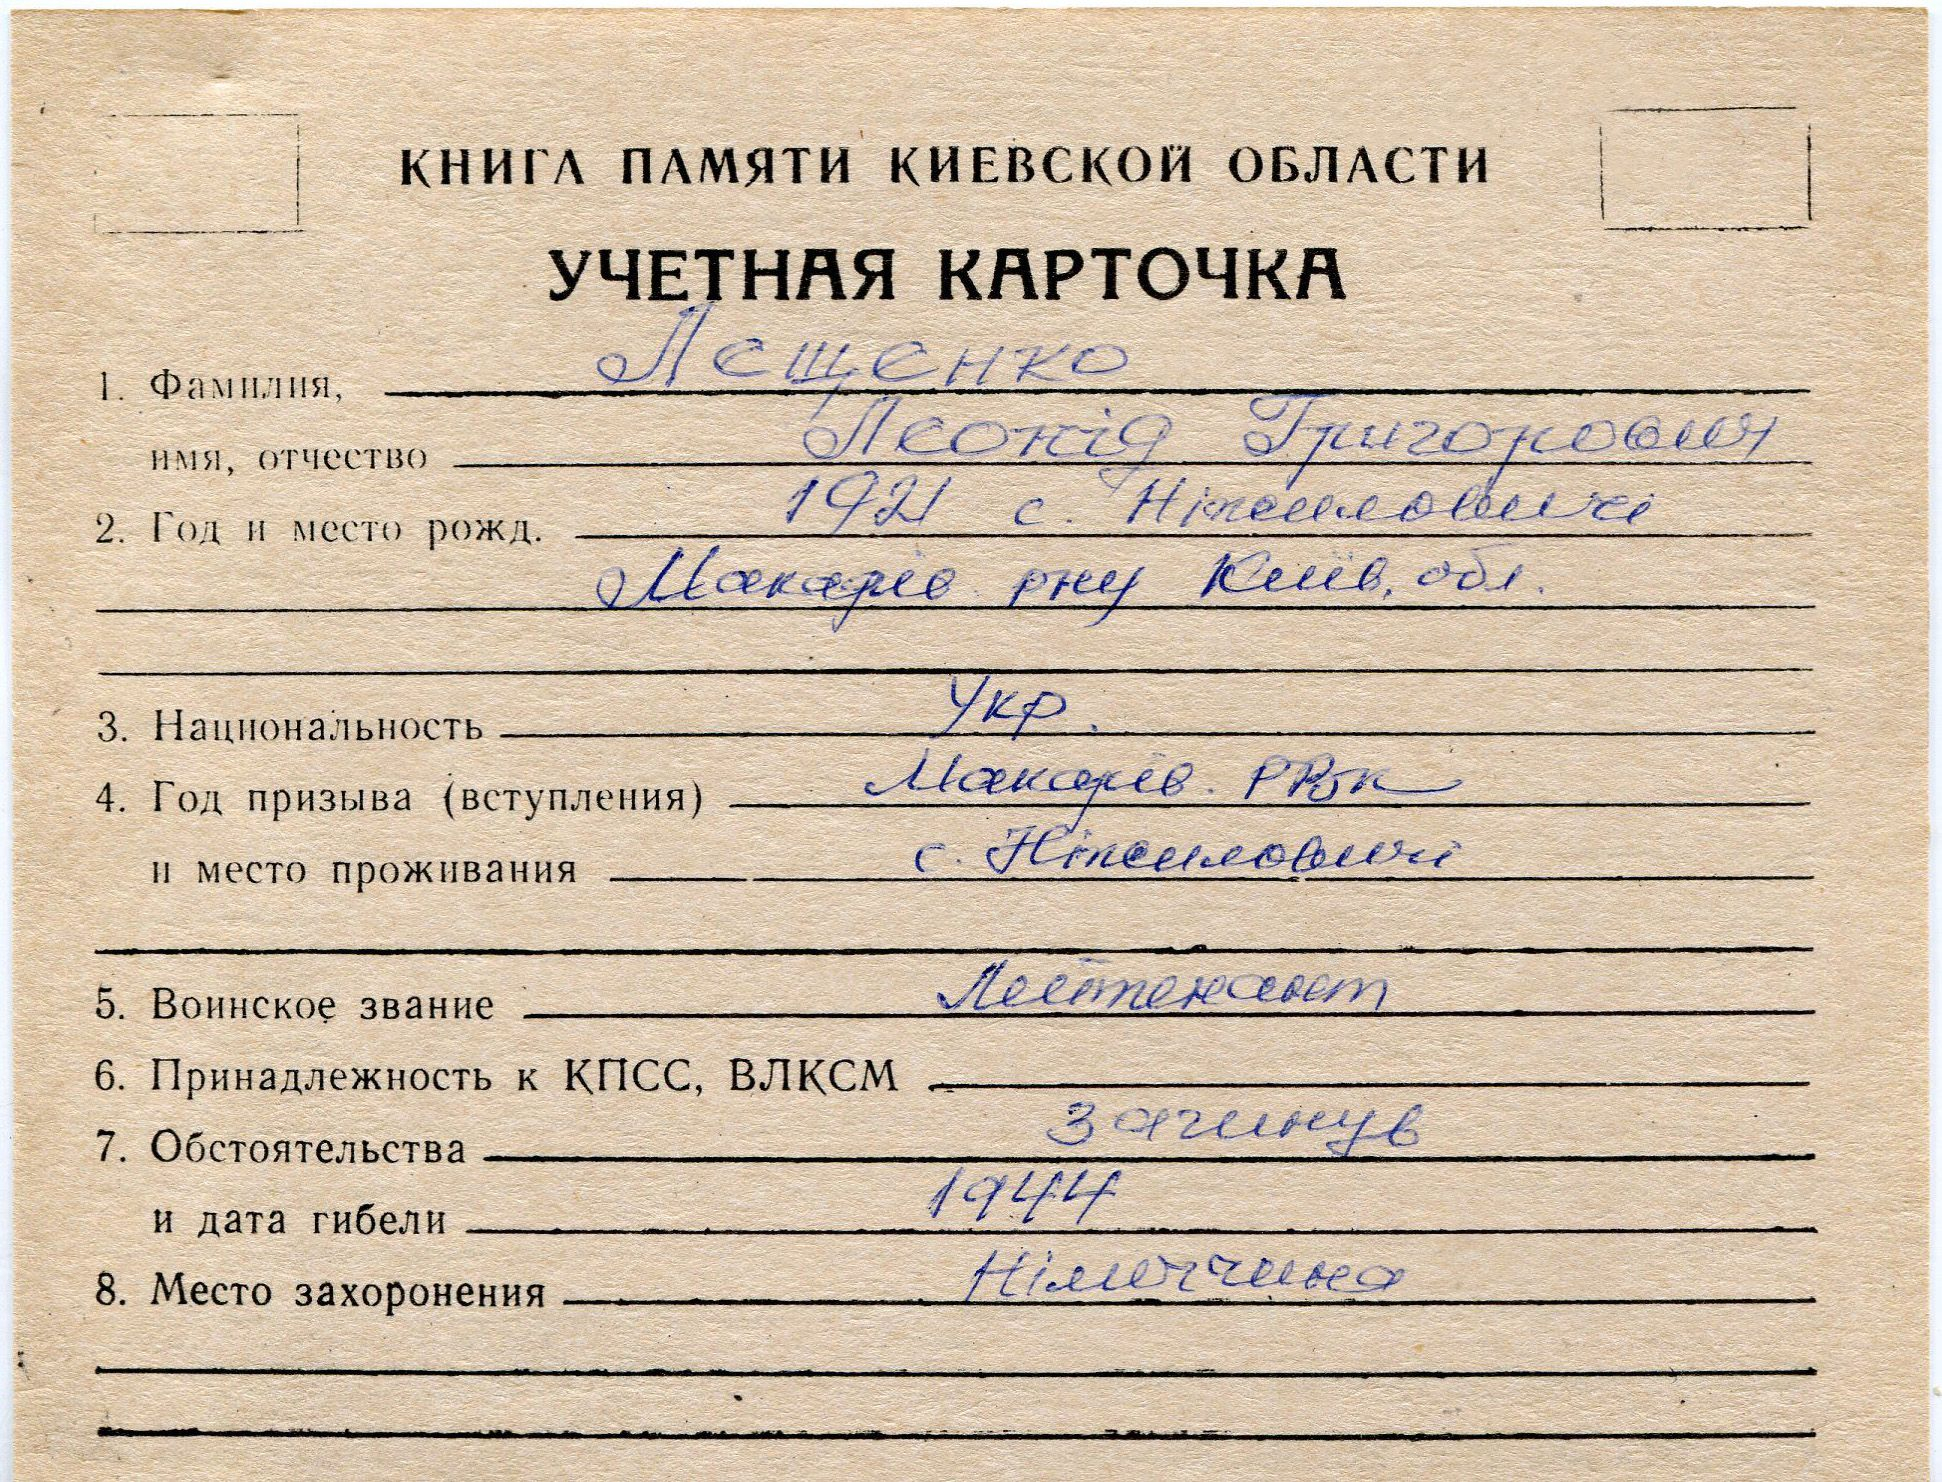 КНИГА ПАМЯТИ КИЕВСКОЙ ОБЛАСТИ
УЧЕТНАЯ КАРТОЧКА
1. Фамилия, Лещенко
имя, отчество Леонід Григорович
2. Год и место рожд. 1921 с. Ніжиловичі
Макарів. р-ну Київ. обл.
3. Национальность Укр.
4. Год призыва (вступления) Макарів. РВК
и место проживания с. Ніжиловичі
5. Воинское звание Лейтенант
6. Принадлежность к КПСС, ВЛКСМ
7. Обстоятельства загинув
и дата гибели 1944
8. Место захоронения Німеччина